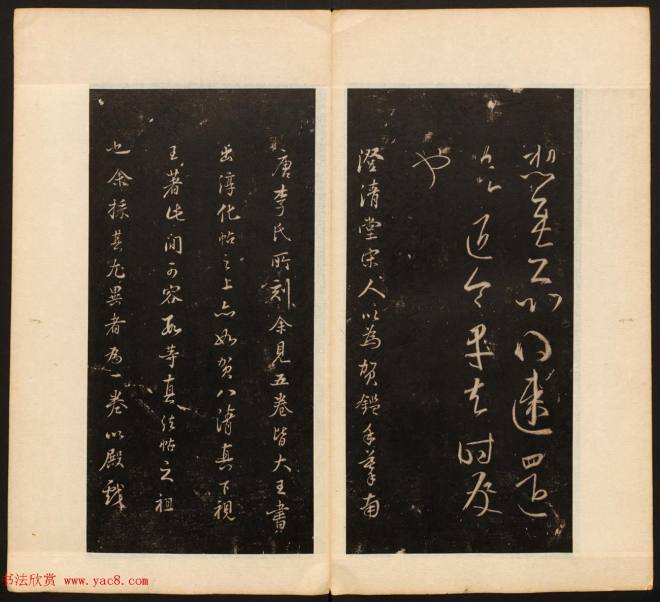 也
澄清堂宋人以為賀鑑手摹南
唐李氏所刻余見五卷皆大王書
出淳化帖之上亦如賀八清真下視
王著此間可容數等真法帖之祖
也余採其尤異者為一卷以殿戲
书法欣赏 www.yac8.com